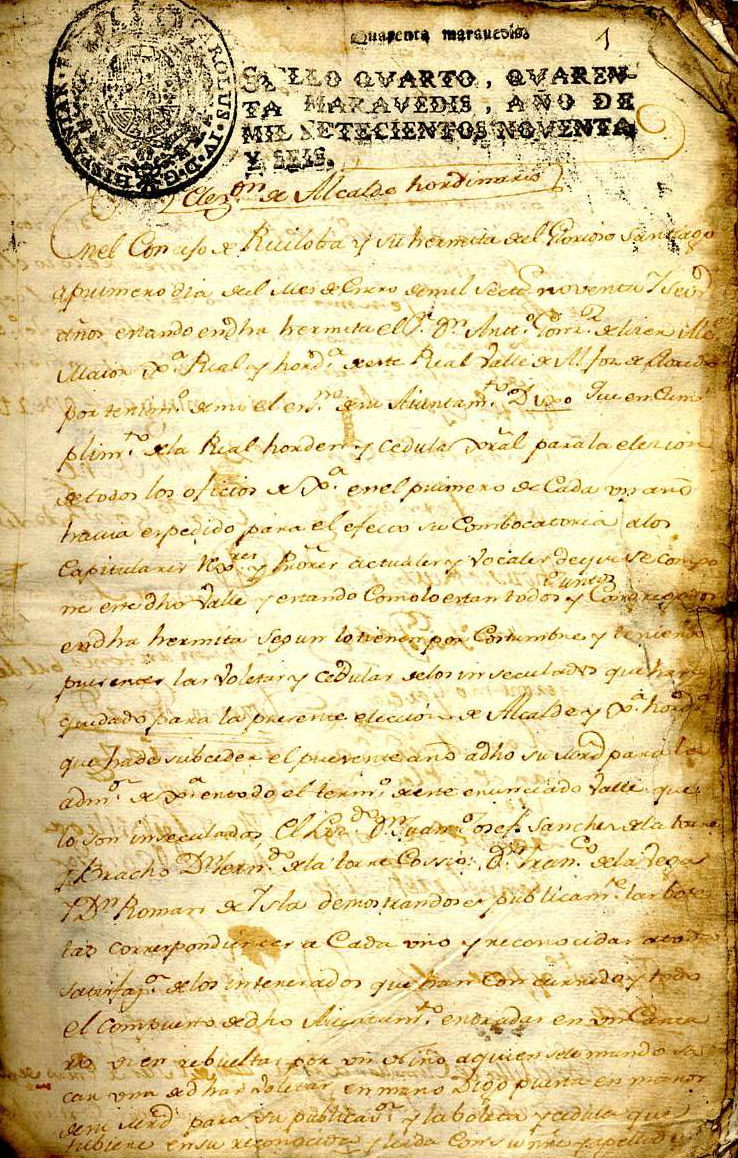 Quarenta maravedis.
1
SELLO QVARTO, QVAREN-
TA MARAVEDIS, AÑO DE
MIL SETECIENTOS NOVENTA
Y SEIS.
CAROLUS IV D G HISPANIAR
Elez.on de Alcalde hordinario
Enel Concejo de Ruiloba y su hermita del Glorioso Santiago
a primero dia del Mes de Enero de mil Setez.s noventa y Seis
años estando en dha hermita el S.r Dn Antt.o
Maior Real y hord.a de este Real Valle de
por testim.o de mi el es.no de su Aiuntam.to Dixo Que en Cum
plim.to de la Real horden y Cedula para la elecion
de todos los oficios de X.a en el primero de Cada un año
havia espedido para el efecto su Combocatoria a los
Capitulares actuales y vocales de que se Compo
ne este dho Valle y estando Como lo estan todos Juntos y Congregados
en dha hermita segun lo tienen por Costumbre y teniendo
presentes las voletas y cedulas de los inseculados que han
quedado para la presente eleccion de Alcalde y X.a hord.a
que ha de subceder el presente año a dho su Mrd para la
adm.on de X.a en todo el term.o de este enunciado Valle que
lo son inseculados, El Liz.do Dn Juan Josef Sanchez de la torre
y Bracho Dn fern.do de la torre Cossio; Dn Fran.co de la Vega
Y Dn Roman de Isla demostrandose publicam.te las bole
tas correspondientes a Cada uno y reconocidas a toda
satisfaz.on de los interesados que han Concurrido y todo
el Compuesto de dho Aiuntam.to, entradas en un Canta
ro vien rebueltas por un Niño a quien se le mando sa
car una de dhas voletas, en mano Digo puesta en manos
de su Mrd para su publicaz.on y la boleta y cedula que
tubiere en su reconocida y leida Con su nre y apellido